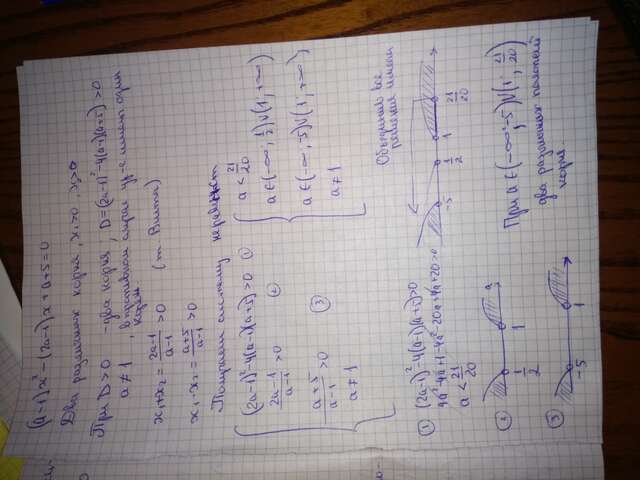 (a-1)x² - (2a-1)x + a+5 = 0
Два различных корня, x₁>0, x₂>0
При D>0 - два корня, D=(2a-1)²-4(a-1)(a+5)>0
a≠1, в противном случае ур-е имеет один
корень
x₁+x₂ = \frac{2a-1}{a-1} > 0 (т Виета)
x₁·x₂ = \frac{a+5}{a-1} > 0
Получаем систему неравенств
(2a-1)²-4(a-1)(a+5)>0 ①
\frac{2a-1}{a-1} > 0 ②
\frac{a+5}{a-1} > 0 ③
a≠1
a < \frac{21}{20}
a∈(-∞; \frac{1}{2})∪(1; +∞)
a∈(-∞; -5)∪(1; +∞)
a≠1
① (2a-1)²-4(a-1)(a+5)>0
4a²-4a+1-4a²-20a+4a+20>0
a < \frac{21}{20}
② \frac{1}{2} 1 a
③ -5 1
Объединив все
решения имеем
-5 \frac{1}{2} 1 \frac{21}{20}
При a∈(-∞; -5)∪(1; \frac{21}{20})
два различных
корня